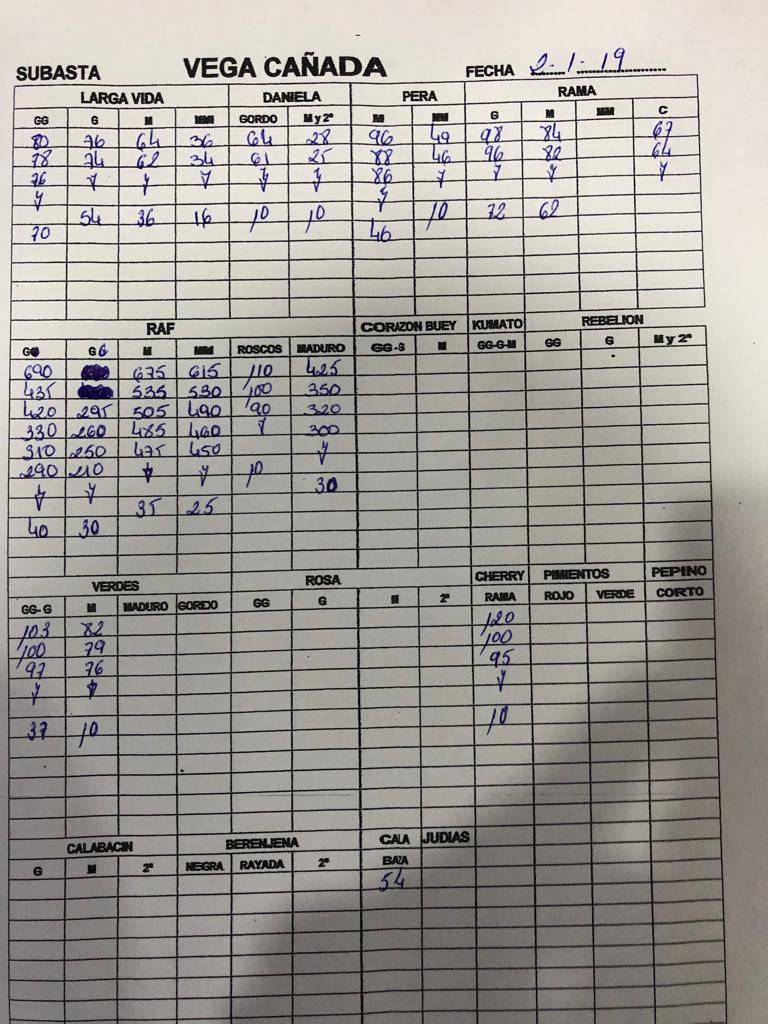 SUBASTA VEGA CAÑADA FECHA 2-1-19
LARGA VIDA DANIELA PERA RAMA
GG G M MM GORDO M y 2ª M MM G M MM C
80 76 64 36 64 28 96 49 98 84 67
78 74 62 34 61 25 88 46 96 82 64
76 y y y y y 86 y y y y
y y
54 36 16 10 10 10 72 62
70 46
RAF CORAZON BUEY KUMATO REBELION
GG G M MM ROSCOS MADURO GG-G M GG-G-M GG G M y 2ª
690 675 615 110 425
435 535 530 100 350
420 295 505 490 90 320
330 260 485 460 y 300
310 250 475 450 y
290 210 y y 10 30
y y 35 25
40 30
VERDES ROSA CHERRY PIMIENTOS PEPINO
GG-G M MADURO GORDO GG G M 2ª RAMA ROJO VERDE CORTO
103 82 120
100 79 100
97 76 95
y y y
37 10 10
CALABACIN BERENJENA CALA JUDIAS
G M 2ª NEGRA RAYADA 2ª BAZA
54